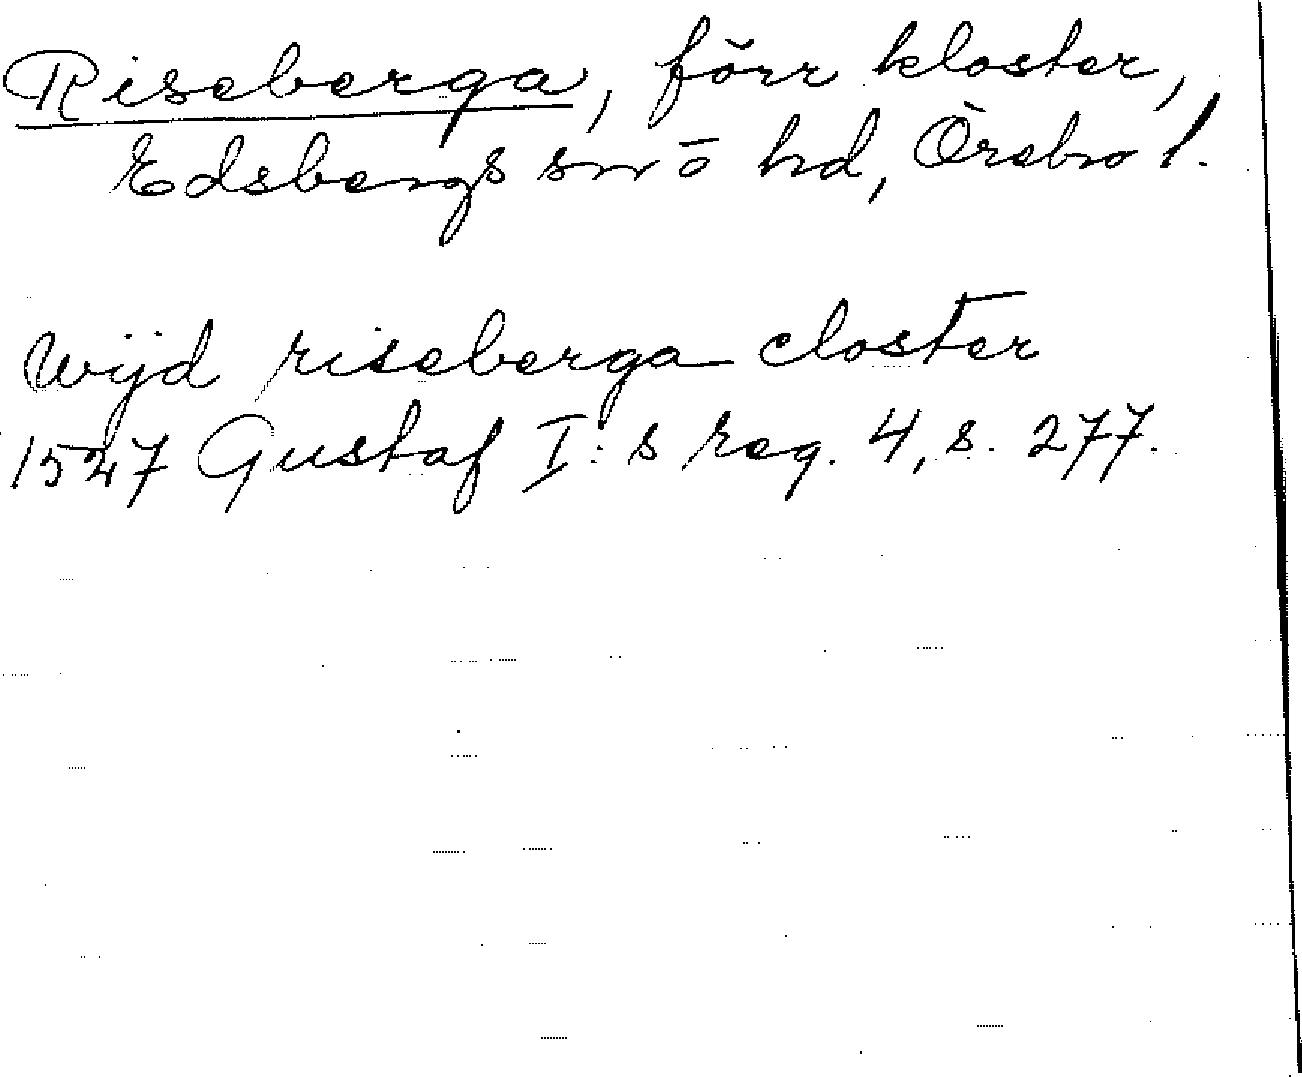 Riseberga, förr kloster,
Edsbergs sn o hd, Örebro l.
Wijd riseberga closter
1527 Gustaf I:s reg. 4, s. 277.